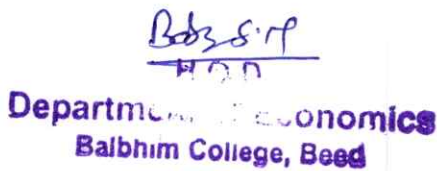 HOD
Department of Economics
Balbhim College, Beed